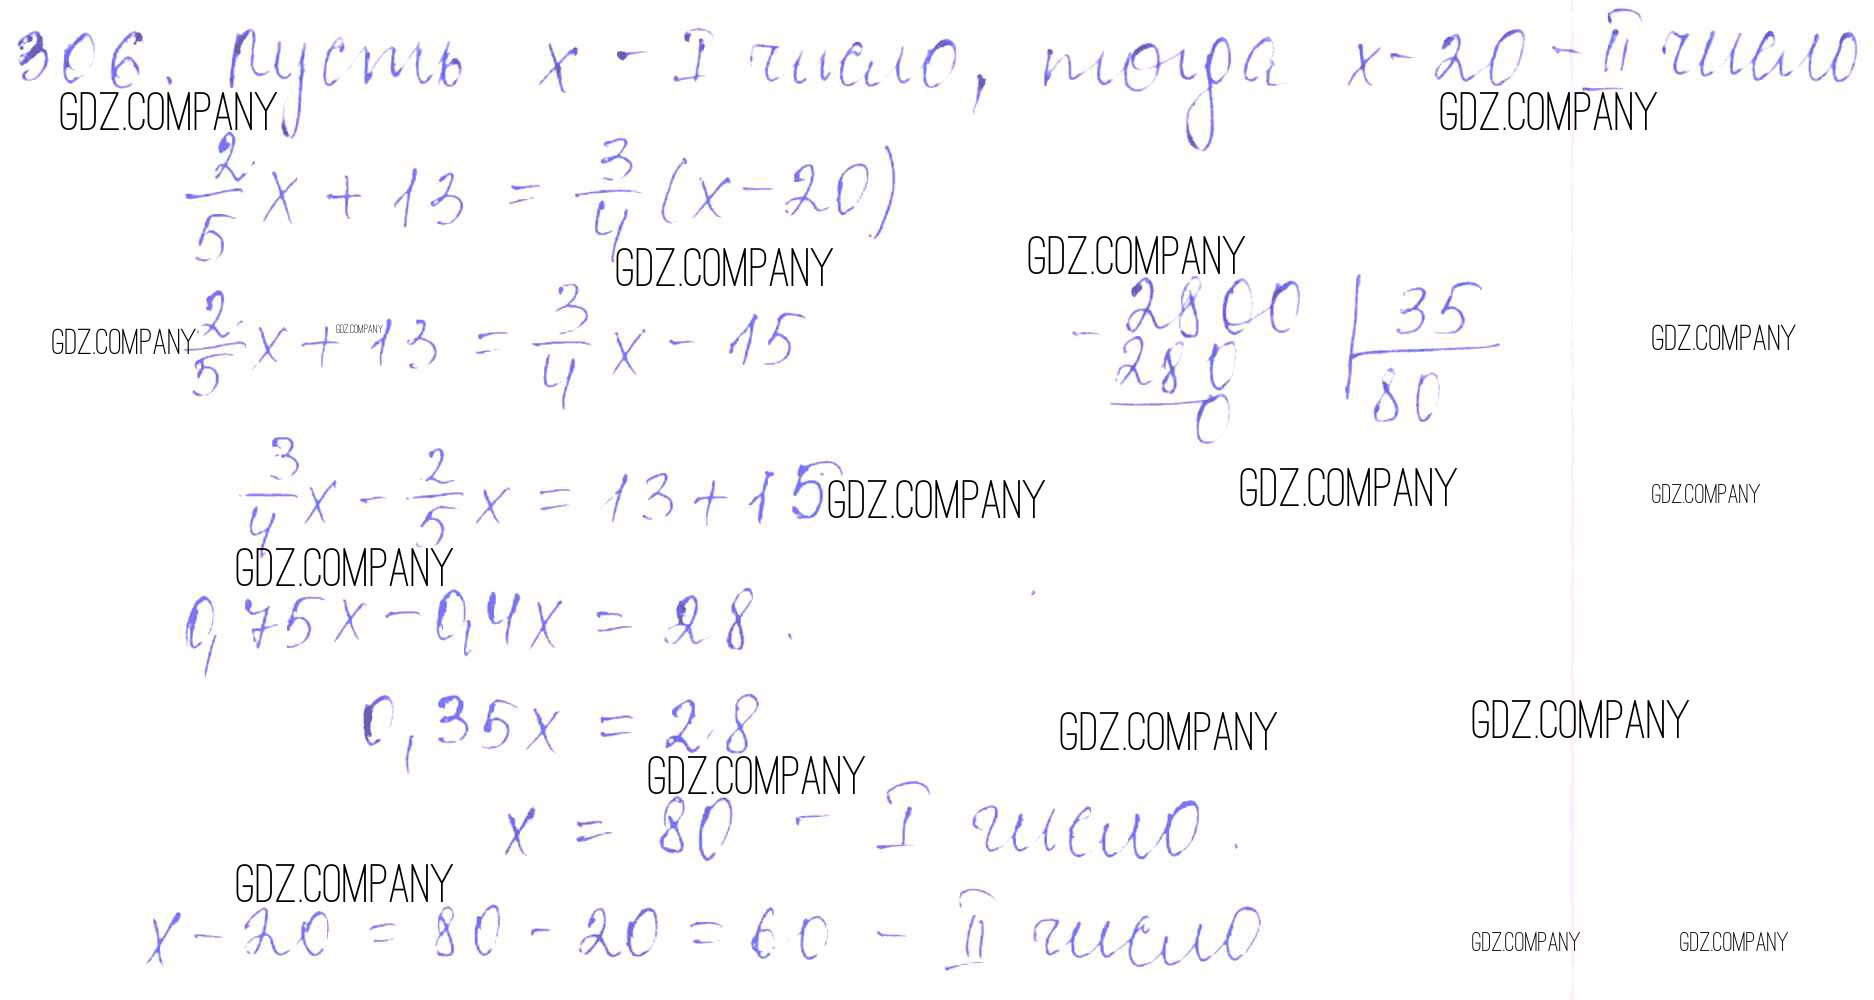 306. Пусть x - I число, тогда x-20 - II число
GDZ.COMPANY GDZ.COMPANY
2/5 x + 13 = 3/4 (x-20)
GDZ.COMPANY GDZ.COMPANY
GDZ.COMPANY 2/5 x + 13 = 3/4 x - 15 GDZ.COMPANY
GDZ.COMPANY
- 2800 | 35
280 | 80
0
3/4 x - 2/5 x = 13 + 15 GDZ.COMPANY GDZ.COMPANY GDZ.COMPANY
GDZ.COMPANY
0,75x - 0,4x = 28
0,35x = 28 GDZ.COMPANY GDZ.COMPANY
GDZ.COMPANY
x = 80 - I число.
GDZ.COMPANY
x - 20 = 80 - 20 = 60 - II число GDZ.COMPANY GDZ.COMPANY